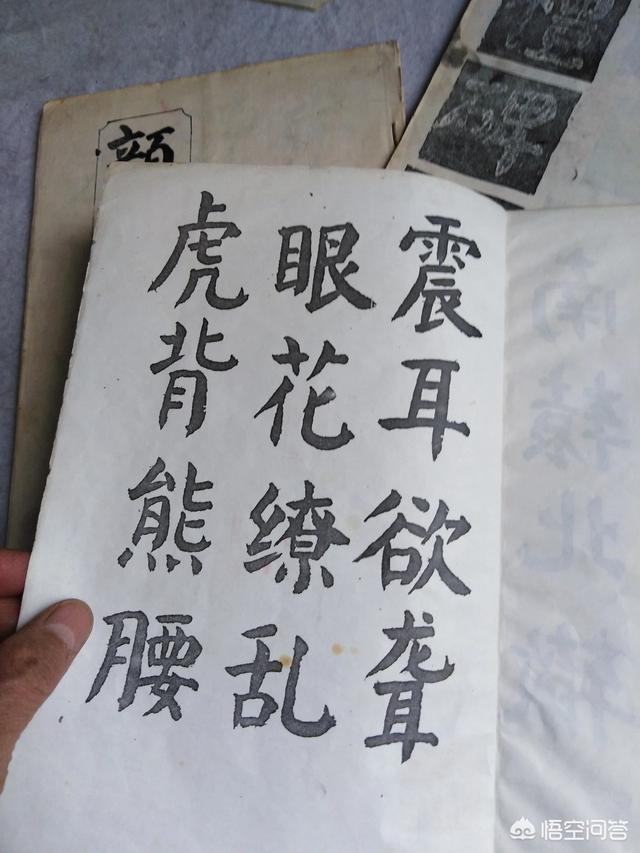 震耳欲聋
眼花缭乱
虎背熊腰
悟空问答